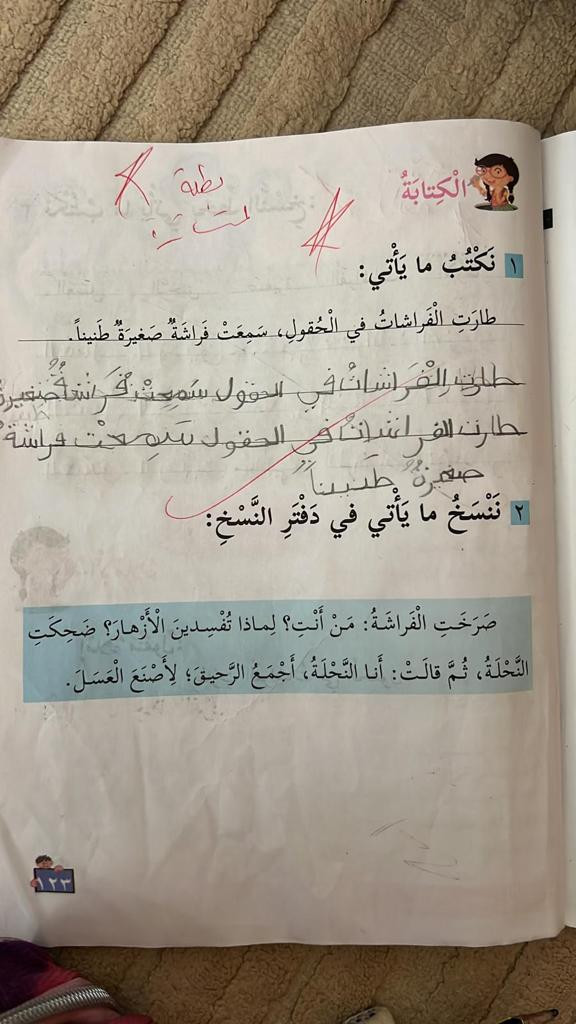 الْكِتابَةُ
بطلة
١ نَكْتُبُ ما يَأْتي:
طارَتِ الْفَراشاتُ في الْحُقولِ، سَمِعَتْ فَراشَةٌ صَغيرَةٌ طَنيناً.
طارت الْفَراشاتُ في الحقول سَمِعتْ فَراشةٌ صغيرة
طارت الفراشات في الحقول سمعت فراشة
صغيرةٌ طنيناً
٢ نَنْسَخُ ما يَأْتي في دَفْتَرِ النَّسْخِ:
صَرَخَتِ الْفَراشَةُ: مَنْ أَنْتِ؟ لِماذا تُفْسِدينَ الْأَزْهارَ؟ ضَحِكَتِ
النَّحْلَةُ، ثُمَّ قالَتْ: أَنا النَّحْلَةُ، أَجْمَعُ الرَّحيقَ؛ لِأَصْنَعَ الْعَسَلَ.
١٢٣